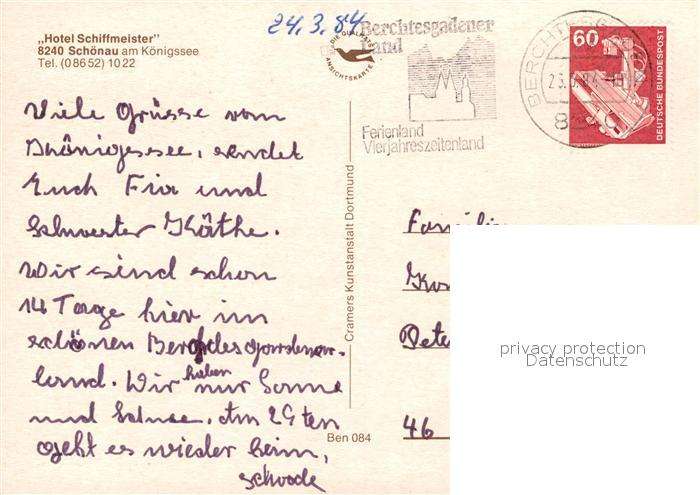 „Hotel Schiffmeister"
8240 Schönau am Königssee
Tel. (0 86 52) 10 22
24.3.84
DIE QUALITÄTS
ANSICHTSKARTE
Berchtesgadener
Land
Ferienland
Vierjahreszeitenland
BERCHTESG
60
DEUTSCHE BUNDESPOST
Viele Grüsse vom
Königssee, sendet
Euch Fia und
Schwester Käthe.
Wir sind schon
14 Tage hier im
schönen Berchdesgardener-
land. Wir haben nur Sonne
und Schnee. Am 29ten
geht es wieder heim,
schade
Cramers Kunstanstalt Dortmund
Ben 084
Familie
46
privacy protection
Datenschutz